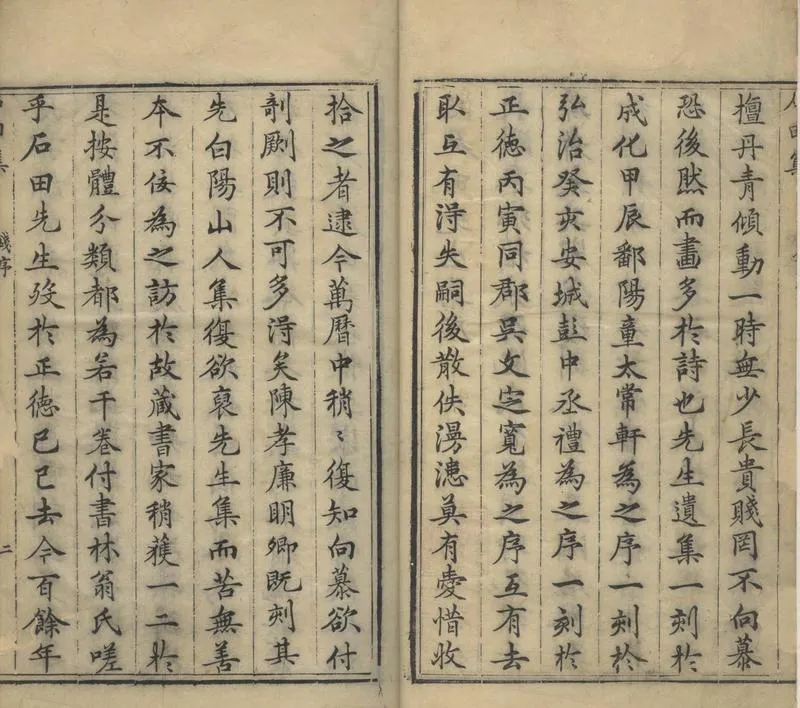 擅丹青傾動一時無少長貴賤罔不向慕
恐後然而畫多於詩也先生遺集一刻於
成化甲辰鄱陽童太常軒為之序一刻於
弘治癸亥安城彭中丞禮為之序一刻於
正德丙寅同郡吳文定寬為之序互有去
取互有淂失嗣後散佚漫漶莫有愛惜收
拾之者逮今萬曆中稍〻復知向慕欲付
剞劂則不可多淂矣陳孝廉明卿既刻其
先白陽山人集復欲裒先生集而苦無善
本不佞為之訪於故藏書家稍獲一二於
是按體分類都為若干卷付書林翁氏嗟
乎石田先生歿於正德己巳去今百餘年
田集
錢序
二